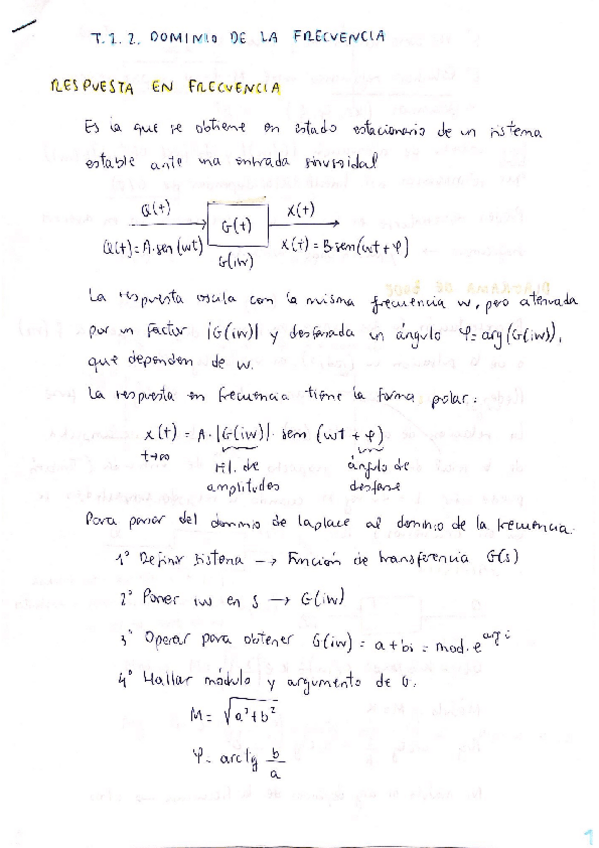 T.1.2. DOMINIO DE LA FRECUENCIA
RESPUESTA EN FRECUENCIA
Es la que se obtiene en estado estacionario de un sistema
estable ante una entrada sinusoidal
Q(t) G(t) X(t)
Q(t)=A·sen(wt) G(iw) X(t)=B·sen(wt+φ)
La respuesta oscila con la misma frecuencia w, pero atenuada
por un factor |G(iw)| y desfasada un ángulo φ=arg(G(iw)),
que dependen de w.
La respuesta en frecuencia tiene la forma polar:
x(t) = A·|G(iw)|·sen (wt + φ)
t→∞ rel. de ángulo de
amplitudes desfase
Para pasar del dominio de laplace al dominio de la frecuencia:
1º Definir sistema → Función de transferencia G(s)
2º Poner iw en s → G(iw)
3º Operar para obtener G(iw) = a+bi = mod·e^arg·i
4º Hallar módulo y argumento de G.
M = √a²+b²
φ = arctg b/a
1